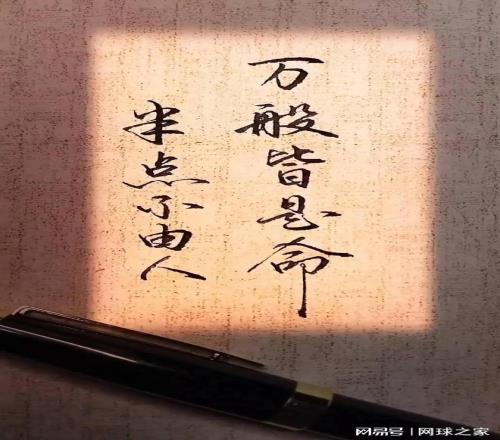 万般皆是命
半点不由人
网易号 | 网球之家